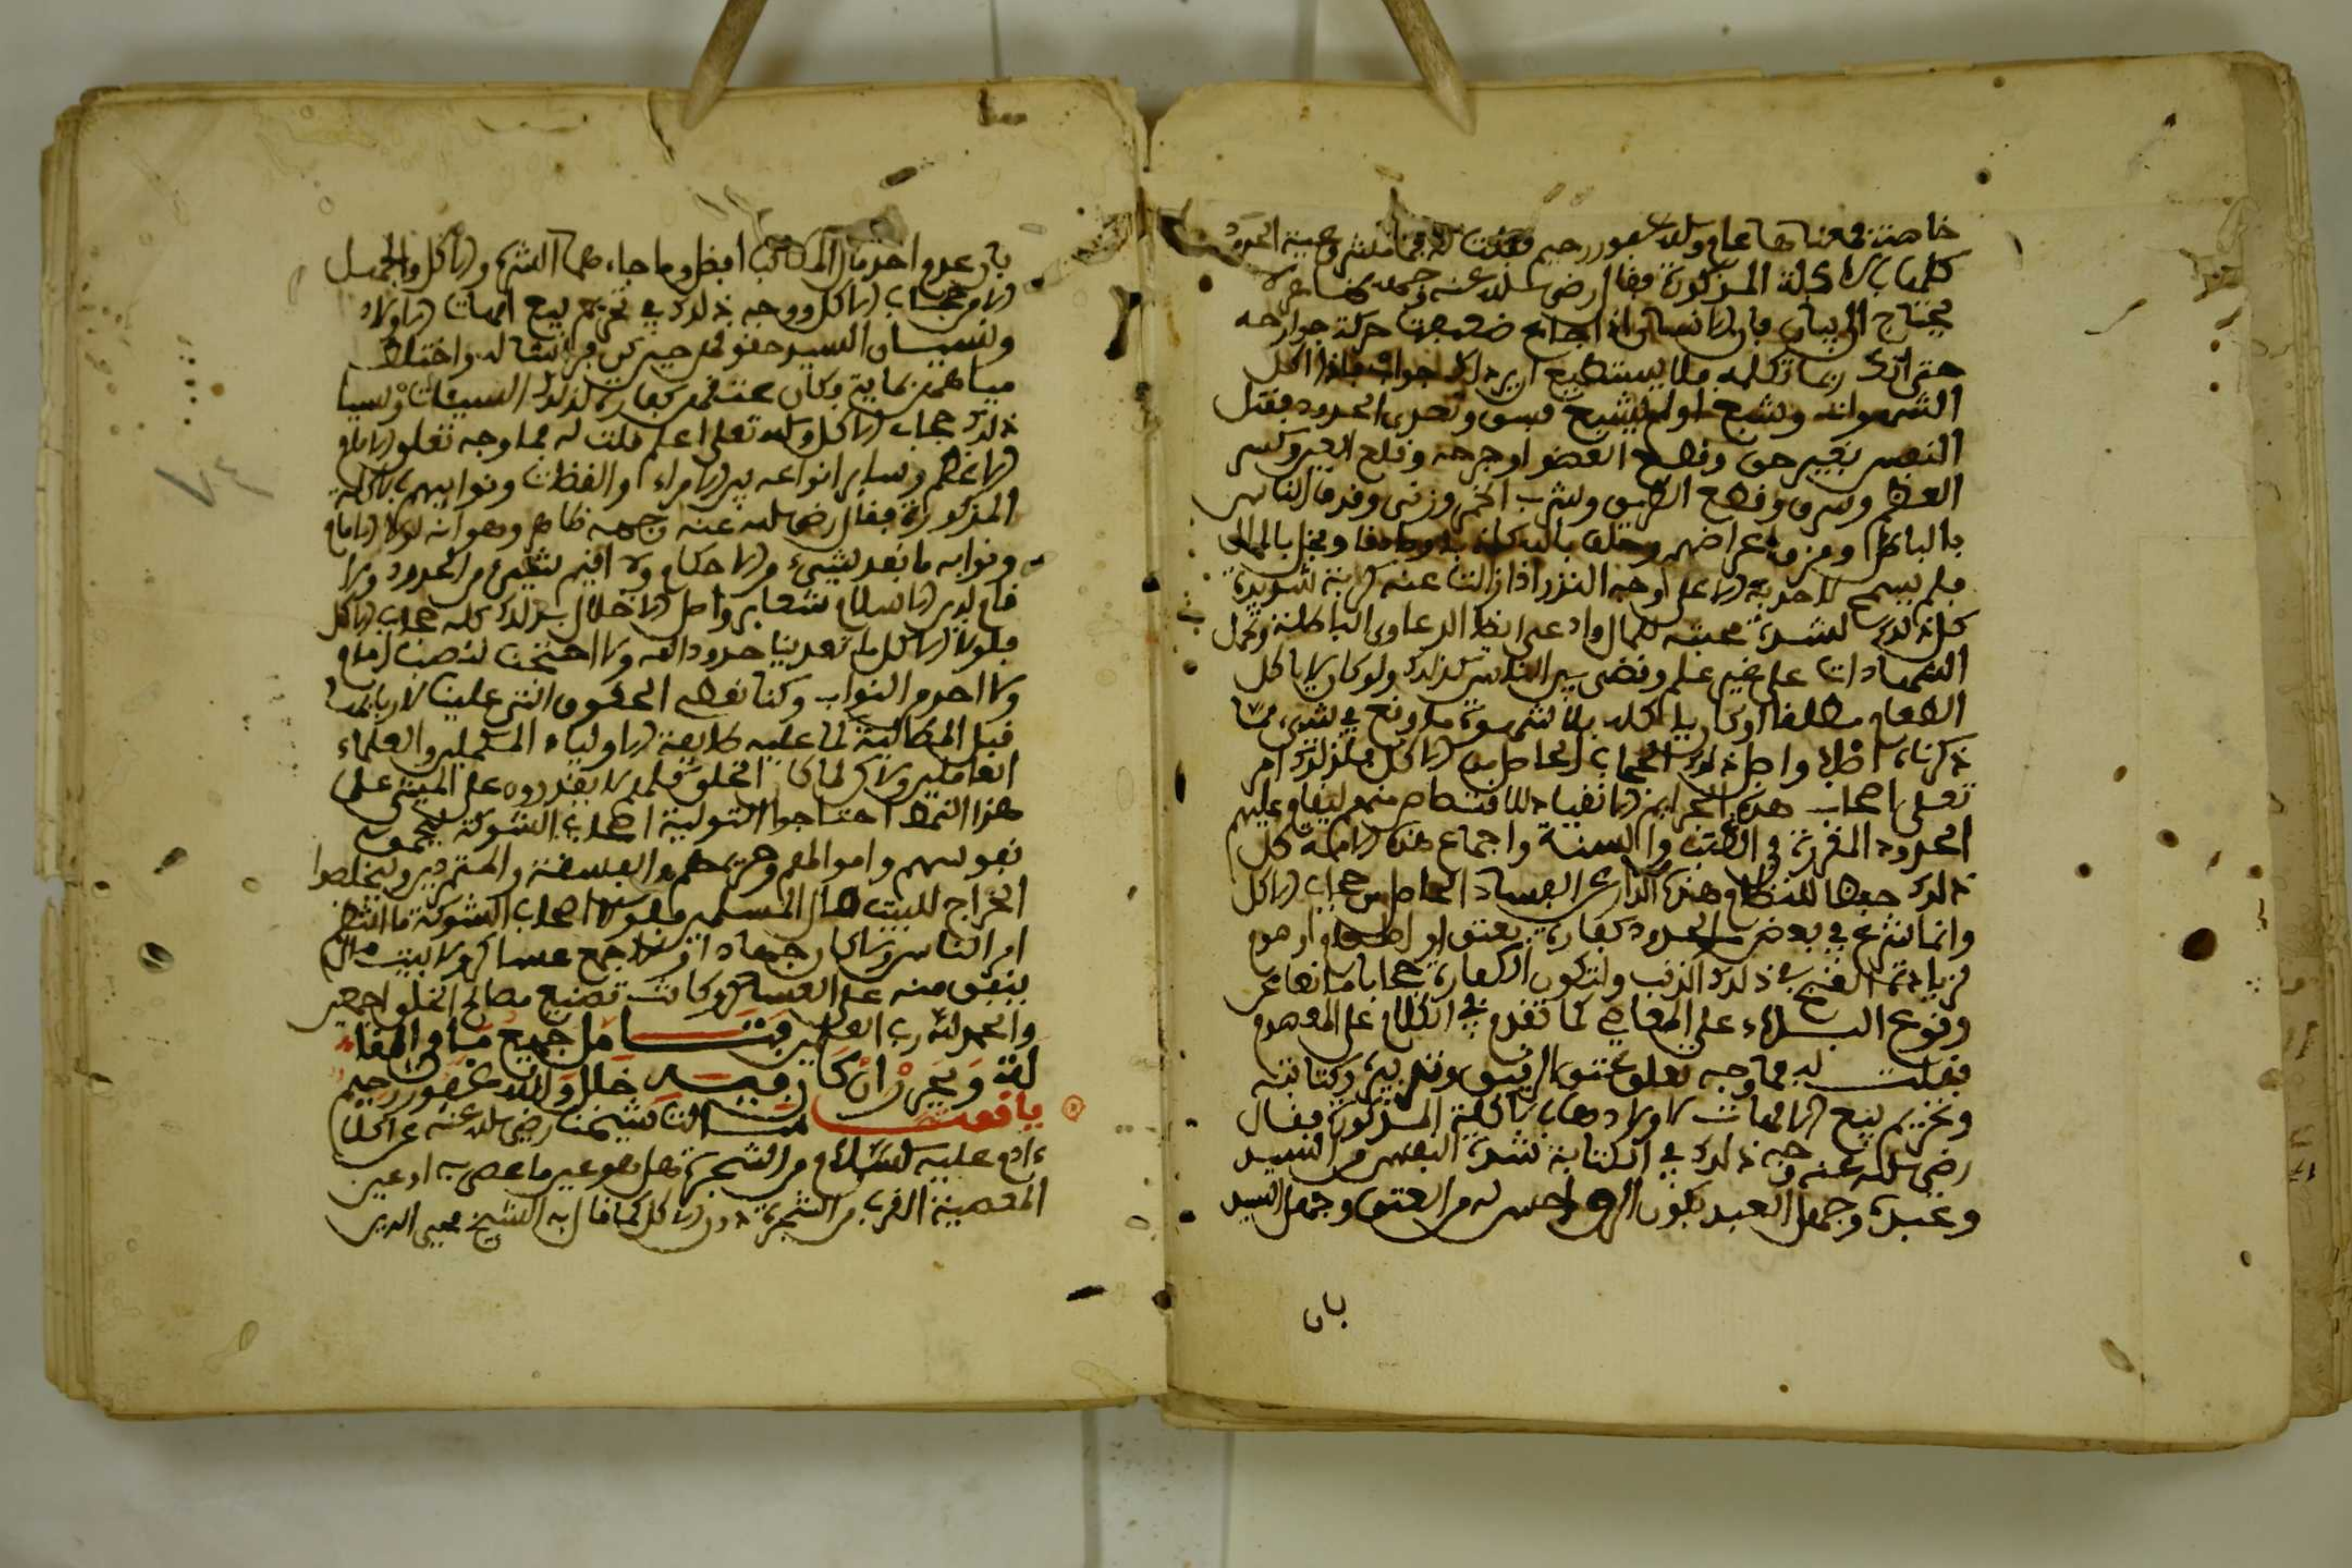 خاصة فمعناها عام والله غفور رحيم فقلت له فما مشروعية الحدود
كلها بالاكلة المذكورة فقال رضي الله عنه وجهه ظاهر لا
يحتاج الى بيان فان الانسان اذا جاع ضعفت حركة جوارحه
حتى انك ربما تكلمه فلا يستطيع ان يرد لك جوابا فاذا اكل
الشهوات وشبع او لم يشبع فسق وتعدى الحدود فقتل
النفس بغير حق وقطع العضو او جرحه وقلع العين وكسر
العظم وسرق وقطع الطريق وشرب الخمر وزنى وقذف الناس
بالباطل ومزق اعراضهم وحلف بالله كاذبا وصادقا وبخل بالمال
فلم يسمح لاحد به الا على وجه النذر اذا زالت عنه كربة شديدة
كل ذلك لشدة محبته للمال وادعى ايضا الدعاوى الباطلة وتحمل
الشهادات على غير علم وقضى بين الناس كذلك ولو كان لا ياكل
الطعام مطلقا او كان ياكله بلا شهوة ما وقع في شيء مما
ذكرناه اصلا واصل ذلك الحجاب الحاصل من الاكل فلذلك امر
تعلى اصحاب هذه الجرايم الانقياد للاقتصاص منهم ليقام عليهم
الحدود المقررة في الكتب والسنة واجماع هذه الامة كل
ذلك حفظا للنظام وهذه الدار عن الفساد الحاصل من حجاب الاكل
وانما شرع في بعض الحدود كفارة بعتق او اطعام او صوم
لزيادة القبح في ذلك الذنب ولتكون الكفارة حجابا مانعا عن
وقوع البلاء على العاصي كما تقدم في الكلام على الصوم
فقلت له فما وجه تعلق عتق الرقيق وتدبيره وكتابته
وتحريم بيع الامهات الاولاد بالاكلة المذكورة فقال
رضي الله عنه وجه ذلك في الكتابة شدة النفس من السيد
وعبده وجهل العبد بكون الرق احسن له من العتق وجهل السيد
بان
بان عدم اخذ مال المكاتب افضل وما جاءهما الشره والاكل والجهل
الا من حجاب الاكل ووجه ذلك في تحريم بيع امهات الاولاد
ونسيان السيد حقوقهن حين كن فراشا له واختلاط
مياههن بمايه فكان عتقهن كفارة لذلك السيئات ونسيا
ذلك حجاب الاكل والله تعلى اعلم قلت له فما وجه تعلق الامام
الاعظم وساير انواعه من الامراء والقضاة ونوابهم بالاكلة
المذكورة فقال رضي الله عنه وجهه ظاهر وهو انه لولا الامام
ونوابه ما نفذ شيء من الاحكام ولا اقيم شيء من الحدود ولا
قام لدين الاسلام شعاير واصل الاخلال بذلك كله حجاب الاكل
فلولا الاكل ما تعدينا حدود الله ولا احتجنا لنصب امام
ولا احد من النواب وكنا نعطي الحقوق التي علينا لاربابها
قبل المطالبة كما عليه طايفة الاولياء المكملين والعلماء
العاملين ولاكن لما كان الخلق كلهم لا يقدرون على المشي على
هذا النمط احتاجوا الى تولية اصحاب الشوكة ليحموا
نفوسهم واموالهم وحريمهم من الفسقة والمتمردين وليخلصوا
الخراج لبيت مال المسلمين فلولا اصحاب الشوكة ما انتظم
امر الناس ولا كان جهاد ولا جمع عساكر ولا بيت مال
ينفق منه على العساكر وكانت تضيع مصالح الخلق اجمعين
والحمد لله رب العلمين فتامل جميع ما في المقا
لة وحرر ان كان فيه خلل والله غفور رحيم
ياقوت سالت شيخنا رضي الله عنه عن اكل
ءادم عليه السلام من الشجرة هل هو عين ما عصى به او عين
المعصية القرب من الشجرة دون الاكل كما قال به الشيخ محيي الدين